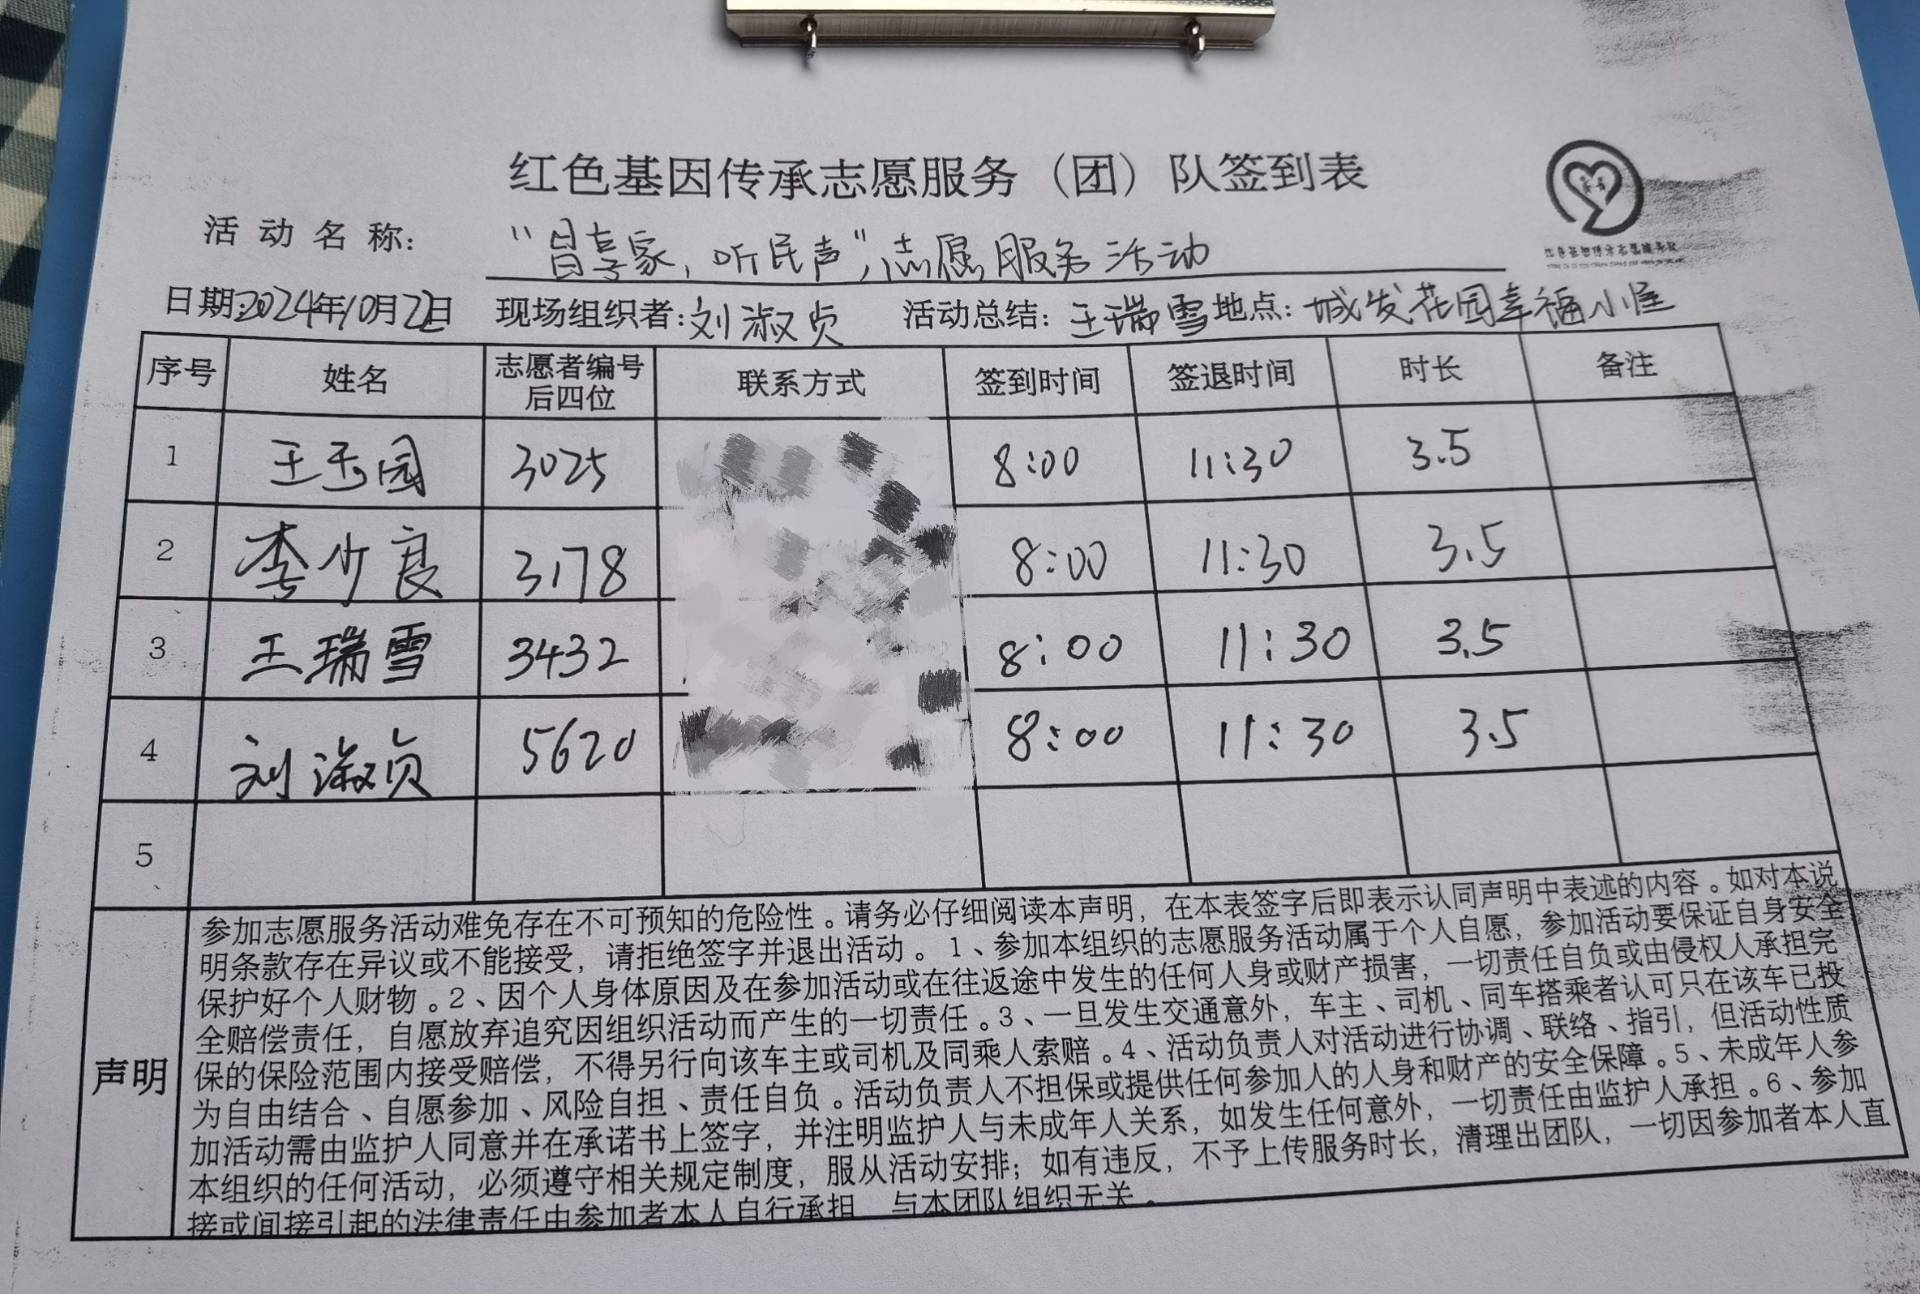 红色基因传承志愿服务（团）队签到表
活动名称： “冒享家，听民声”，志愿服务活动
日期：2024年10月22日 现场组织者：刘淑贞 活动总结：王瑞雪 地点：城发花园幸福小屋
序号 姓名 志愿者编号后四位 联系方式 签到时间 签退时间 时长 备注
1 王秀园 3025 8:00 11:30 3.5
2 李少良 3178 8:00 11:30 3.5
3 王瑞雪 3432 8:00 11:30 3.5
4 刘淑贞 5620 8:00 11:30 3.5
5
声明
参加志愿服务活动难免存在不可预知的危险性。请务必仔细阅读本声明，在本表签字后即表示认同声明中表述的内容。如对本说
明条款存在异议或不能接受，请拒绝签字并退出活动。1、参加本组织的志愿服务活动属于个人自愿，参加活动要保证自身安全
保护好个人财物。2、因个人身体原因及在参加活动或在往返途中发生的任何人身或财产损害，一切责任自负或由侵权人承担完
全赔偿责任，自愿放弃追究因组织活动而产生的一切责任。3、一旦发生交通意外，车主、司机、同车搭乘者认可只在该车已投
保的保险范围内接受赔偿，不得另行向该车主或司机及同乘人索赔。4、活动负责人对活动进行协调、联络、指引，但活动性质
为自由结合、自愿参加、风险自担、责任自负。活动负责人不担保或提供任何参加人的人身和财产的安全保障。5、未成年人参
加活动需由监护人同意并在承诺书上签字，并注明监护人与未成年人关系，如发生任何意外，一切责任由监护人承担。6、参加
本组织的任何活动，必须遵守相关规定制度，服从活动安排；如有违反，不予上传服务时长，清理出团队，一切因参加者本人直
接或间接引起的法律责任由参加者本人自行承担，与本团队组织无关。